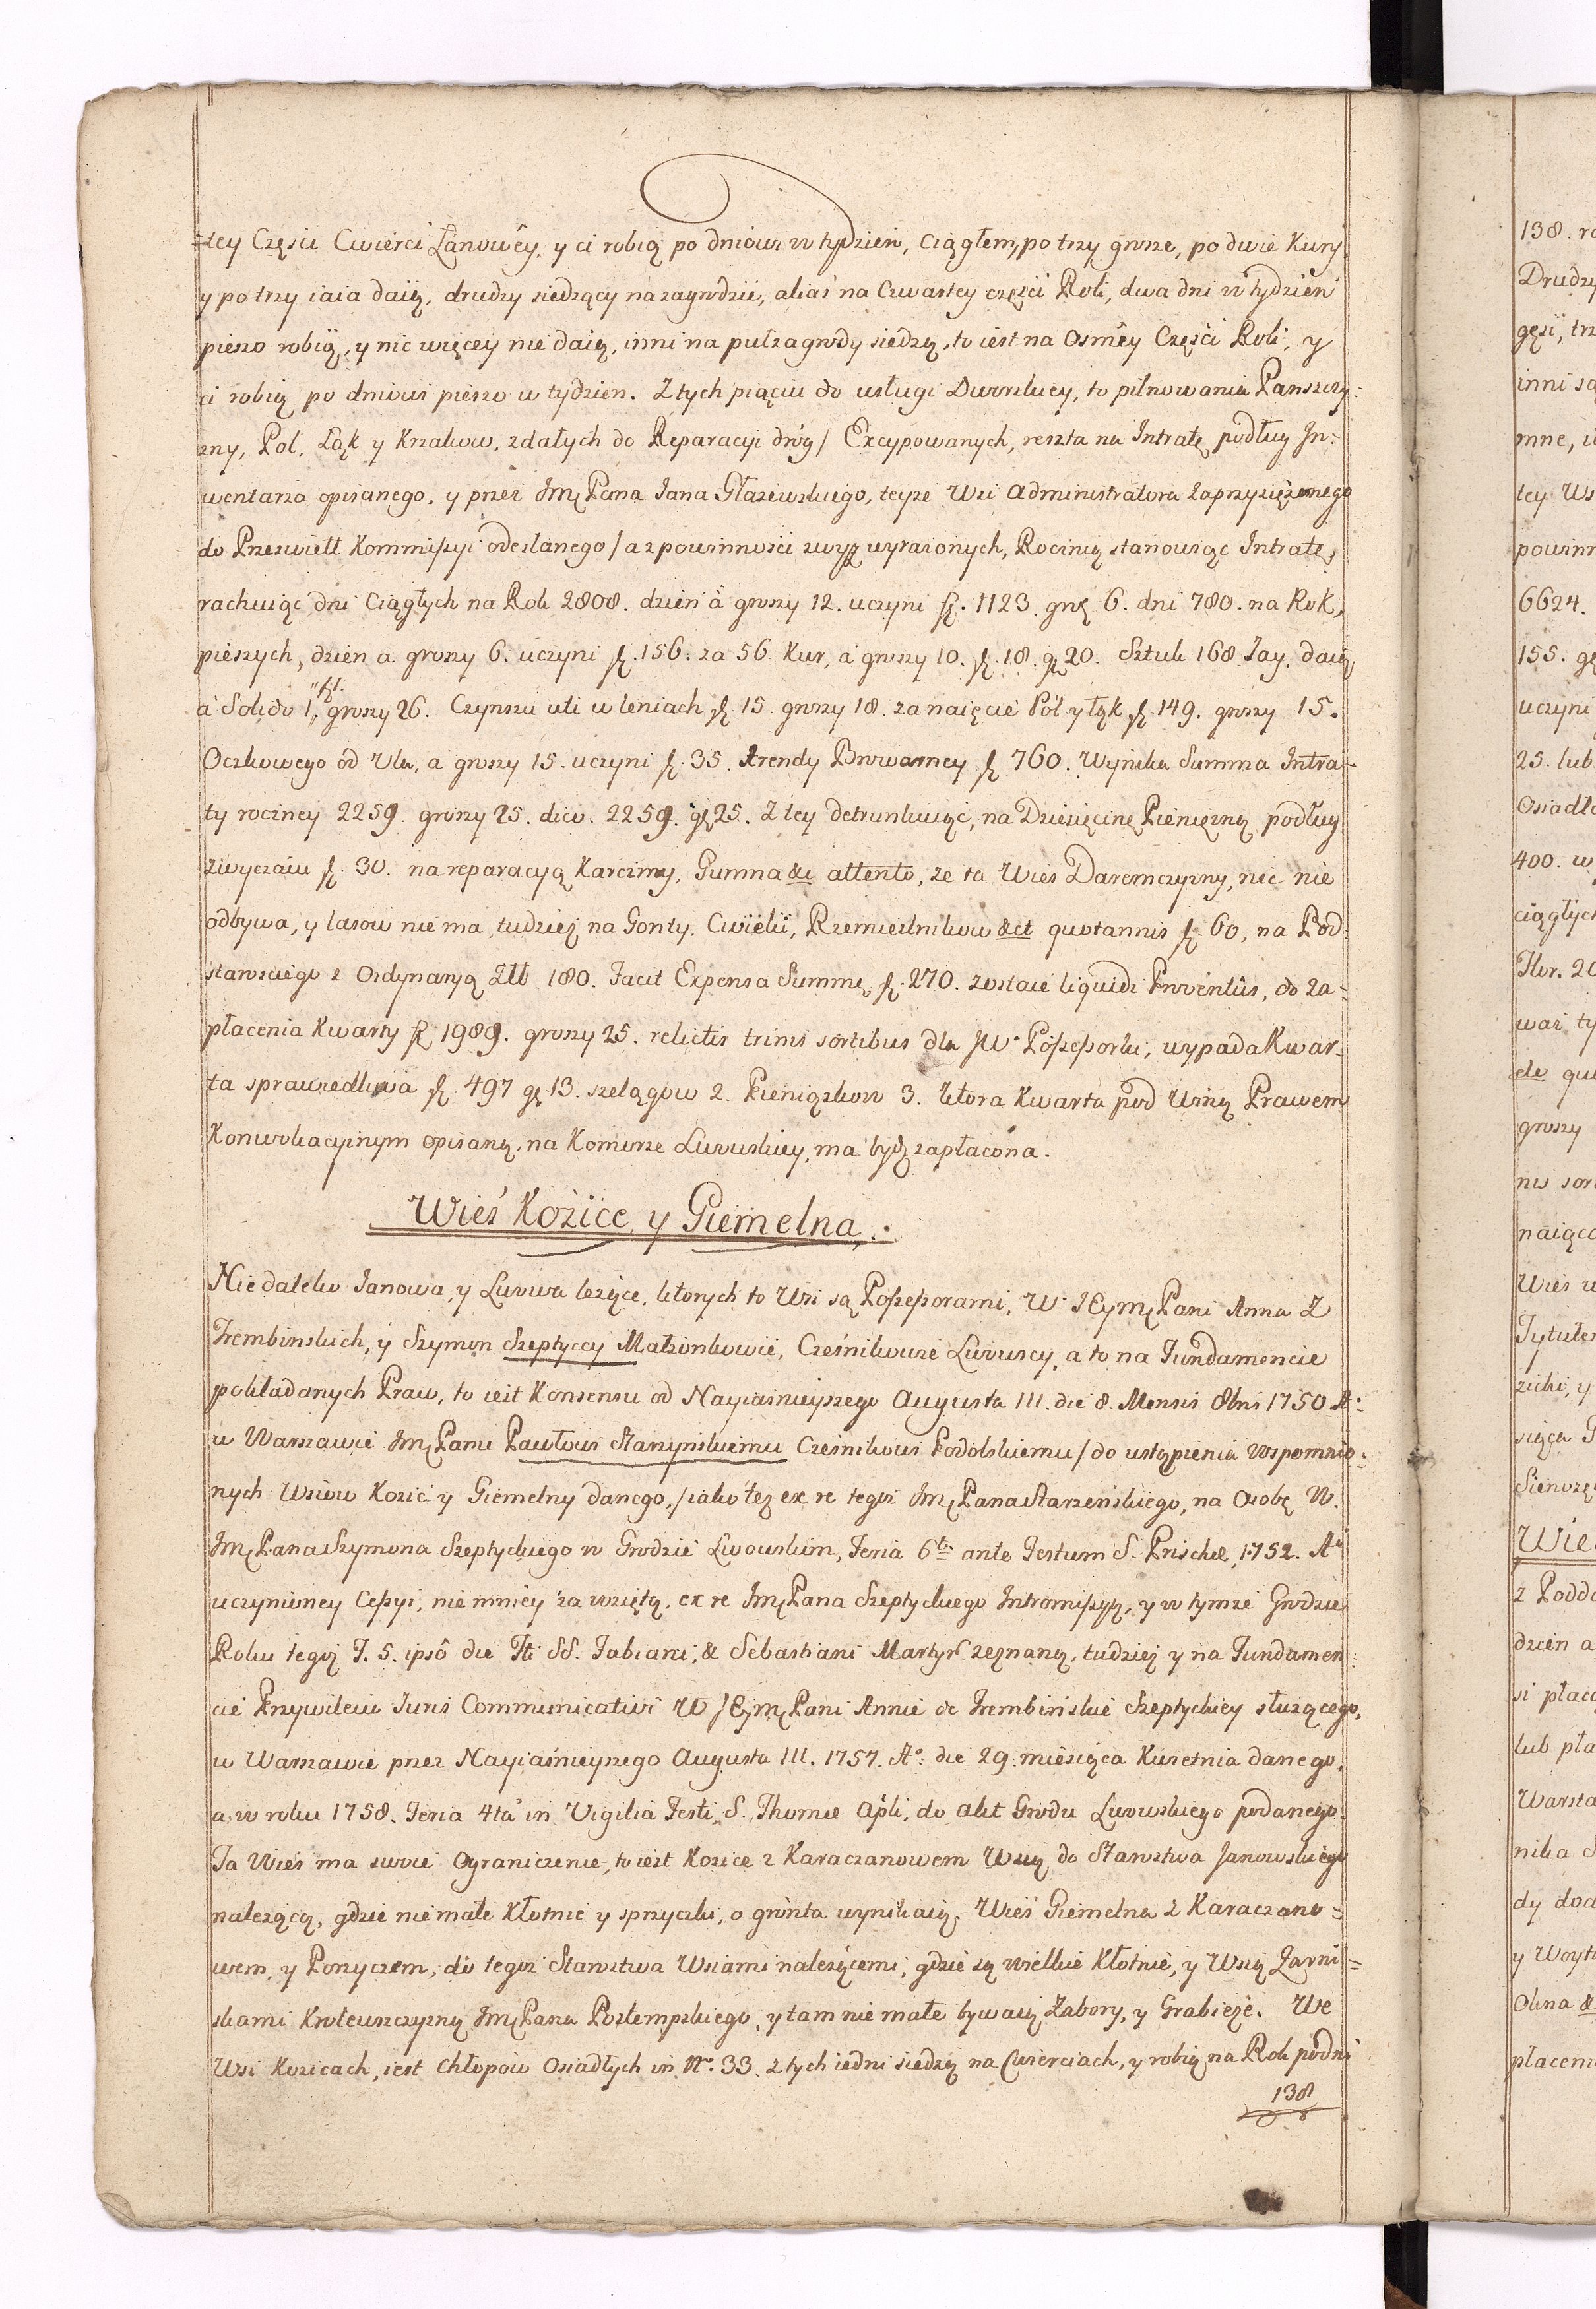 =tey Części Cwierci Łanowéy, y ci robią po dniowi w tydzień, ciągłem, po trzy grosze, po dwie Kury
y po trzy iaia daią, drudzy siedzący na zagrodzie, alias na Czwartey części Roli, dwa dni w tydzień
pieszo robią, y nic więcey nie daią, inni na pułzagrody siedzą, to iest na Osméy Części Roli, y
ci robią po dniowi pieszo w tydzien. Z tych piąciu do usługi Dworskiey, to pilnowania Panszczy=
zny, Pol, Łąk y Krzakow, zdałych do Reparacyi dróg / Excypowanych, reszta na Intratę podług In=
wentarza opisanego, y przez Jmć Pana Jana Głazewskiego, teyze Wsi Administratora zaprzysiężonego
do Przeswiett Kommissyi odesłanego / a z powinności zwyż wyrażonych, Rocznią stanowiąc Intratę,
rachuiąc dni Ciągłych na Rok 2808. dzień à groszy 12. uczyni zł. 1123. gr. 6. dni 780. na Rok,
pieszych, dzien a groszy 6. uczyni zł. 156. za 56 Kur, a groszy 10. zł. 18. gr 20. Sztuk 168 Jay, daią
à Solido 1. zł. groszy 26. Czynszu uti w leniach zł. 15. groszy 18. za naięcie Pól y łąk zł. 149. groszy 15.
Oczkowego od Ula, a groszy 15. uczyni zł. 35. Arendy Browarney zł 760. Wynika Summa Intra-
ty roczney 2259. groszy 25. dico. 2259. gr 25. Z tey detrunkuiąc, na Dziesięcinę Pieniężną podług
zwyczaiu zł. 30. na reparacyą Karczmy, Gumna &c attento, ze ta Wies Daremczyzny, nic nie
odbywa, y lasow nie ma, tudzież na Gonty, Cwieki, Rzemieslnikow &ct quotannis zł 60, na Pod
starościego z Ordynaryą Złł 180. Facit Expensa Summę zł. 270. zostaie liquidi Proventûs, do za=
płacenia Kwarty zł 1989. groszy 25. relictis trinis sortibus dla JW. Possessorki, wypada Kwar=
ta sprawiedliwa zł. 497 gr 13. szelągow 2. Pieniązkow 3. Ktora Kwarta pod Winą Prawem
Konwokacyinym opisaną, na Komorze Lwowskiey, ma bydź zapłacona.
Wieś Kozice, y Giemelna.
Nie daleko Janowa, y Lwowa leżące, ktorych to Wsi są Possessorami, W. JEymć Pani Anna Z
Trembinskich, y Szymon Szeptyccy Małżonkowie, Cześnikowie Lwowscy, a to na Fundamencie
pokładanych Praw, to iest Konsensu od Nayiaśnieyszego Augusta III. die 8. Mensis 8bris 1750 Aº
w Warszawie Jmć Panu Pawłowi Starzynskiemu Cześnikowi Podolskiemu / do ustąpienia wspomnio=
nych Wsiow Kozic y Giemelny danego, / iako też ex re tegoż Jmć Pana Starzeńskiego, na Osobę W.
Jmć Pana Szymona Szeptyckiego w Grodzie Lwowskim, Feria 6ta ante Festum S. Priscæ, 1752. Aº
uczynioney Cessyi, nie mniey zawziętą, ex re Jmć Pana Szeptyckiego Intromissyą, y w tymże Grodzie
Roku tegoż F. 5. ipsô die Fti SS. Fabiani, & Sebastiani Martyr. zeznaną, tudzież y na Fundamen=
cie Przywileiu Juris Communicativi W JEymć Pani Annie de Trembińskie Szeptyckiey służącego,
w Warszawie przez Nayiaśnieyszego Augusta III. 1757. Aº. die 29. miesiąca Kwietnia danego.
a w roku 1758. Feria 4ta in Vigilia Festi, S. Thomæ Apli, do Akt Grodu Lwowskiego podanego.
Ta Wieś ma swoie Ograniczenie, to iest Kozice z Karaczanowem Wsią do Starostwa Janowskiego
należącą, gdzie nie małe Kłotnie y sprzyczki, o grunta wynikaią. Wieś Giemelna z Karaczano=
wem, y Porzyczem, do tegoż Starostwa Wsiami należącemi, gdzie są wielkie Kłotnie, y Wsią Zarni=
skami Kroleuszczyzną Jmć Pana Postempskiego, y tam nie małe bywaią Zabory, y Grabieże. We
Wsi Kozicach, iest Chłopow osiadłych in Nro. 33. z tych iedni siedzą na Cwierciach, y robią na Rok po dni
138